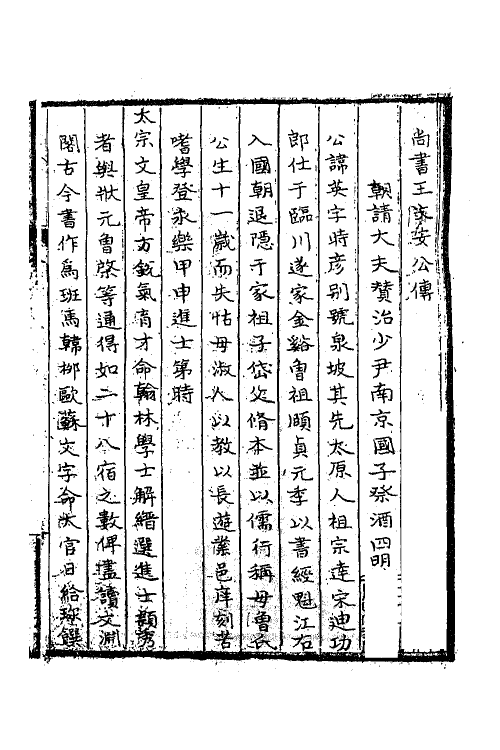 尚書王文安公傳
朝請大夫贊治少尹南京國子祭酒四明
公諱英字時彥別號泉坡其先太原人祖宗逵宋迪功
郎仕于臨川遂家金谿曾祖頤貞元季以書經魁江右
入國朝退隱于家祖子岱父脩本並以儒術稱母曹氏
公生十一歲而失怙母淑人以教以長遊業邑庠刻苦
嗜學登永樂甲申進士第時
太宗文皇帝方銳氣育才命翰林學士解縉選進士穎秀
者與狀元曾棨等通得如二十八宿之數俾盡讀文淵
閣古今書作為班馬韓栁歐蘇文字命大官日給珍饌